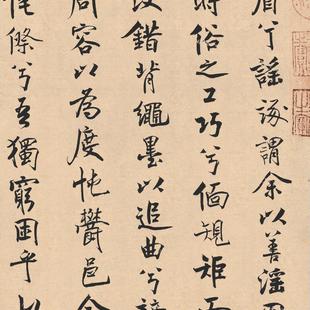 眉兮謠諑謂余以善淫固
時俗之工巧兮偭規矩而
改錯背繩墨以追曲兮競
周容以為度忳鬱邑余
侘傺兮吾獨窮困乎此